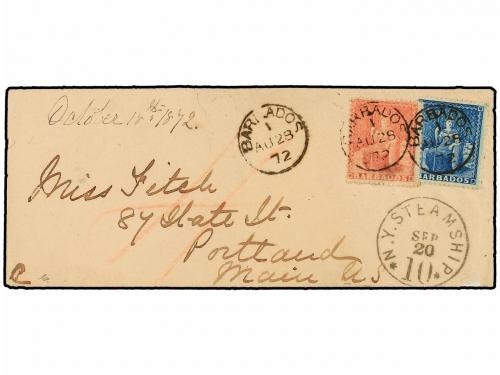 October 18th 1872.
BARBADOS
1
AU 28
72
BARBADOS
AU 28
72
BARBADOS
AU 28
2
BARBADOS
BARBADOS
Miss Fitch
87 State St.
Portland
Main US
N.Y. STEAMSHIP
SEP
20
*10*